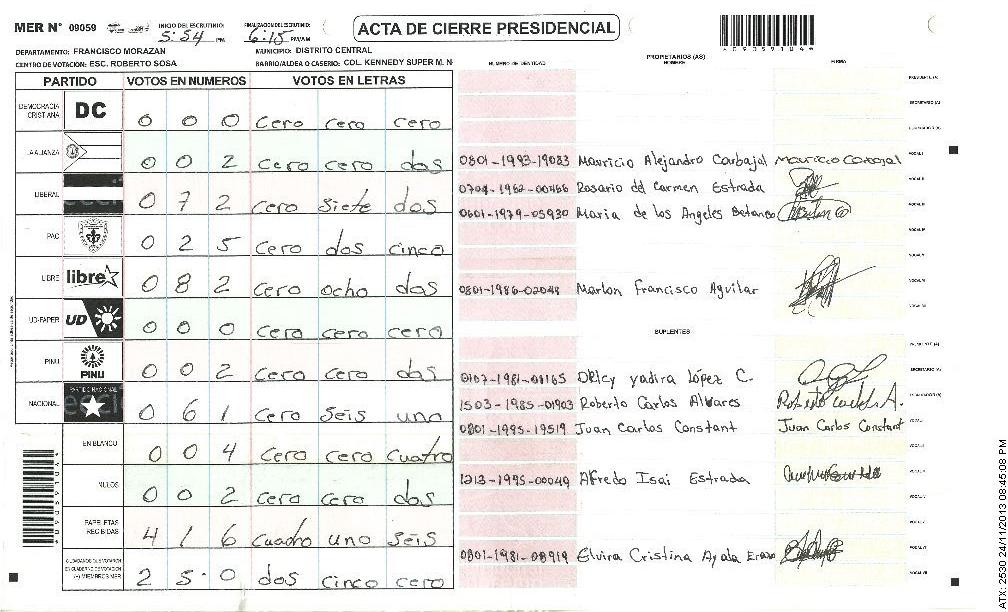 MER N° 09059 INICIO DEL ESCRUTINIO: 5:54 PM FINALIZACIÓN DEL ESCRUTINIO: 6:15 PM/AM
ACTA DE CIERRE PRESIDENCIAL
DEPARTAMENTO: FRANCISCO MORAZAN MUNICIPIO: DISTRITO CENTRAL
CENTRO DE VOTACION: ESC. ROBERTO SOSA BARRIO/ALDEA O CASERIO: COL. KENNEDY SUPER M. N
PARTIDO VOTOS EN NUMEROS VOTOS EN LETRAS
DEMOCRACIA CRISTIANA DC 0 0 0 cero cero cero
LA ALIANZA 0 0 2 cero cero dos
LIBERAL 0 7 2 cero siete dos
PAC 0 2 5 cero dos cinco
LIBRE libre 0 8 2 cero ocho dos
UD-FAPER UD 0 0 0 cero cero cero
PINU PINU 0 0 2 cero cero dos
NACIONAL 0 6 1 cero seis uno
EN BLANCO 0 0 4 cero cero cuatro
NULOS 0 0 2 cero cero dos
PAPELETAS RECIBIDAS 4 1 6 cuadro uno seis
(+) MIEMBROS MER 2 5 0 dos cinco cero
NUMERO DE IDENTIDAD PROPIETARIOS (AS) NOMBRE FIRMA
PRESIDENTE (A)
SECRETARIO (A)
ESCRUTADOR (A)
0801-1993-19083 Mauricio Alejandro Carbajal Mauricio Carbajal VOCAL I
0704-1962-00466 Rosario del Carmen Estrada VOCAL II
0601-1979-05930 Maria de los Angeles Betanco VOCAL III
VOCAL IV
VOCAL V
0801-1986-02048 Marlon Francisco Aguilar VOCAL VI
VOCAL VII
SUPLENTES
PRESIDENTE (A)
0107-1981-01165 Orlcy yadira López C. SECRETARIO (A)
1503-1985-01903 Roberto Carlos Alvares ESCRUTADOR (A)
0801-1995-19519 Juan Carlos Constant Juan Carlos Constant VOCAL I
VOCAL II
1213-1995-00049 Alfredo Isai Estrada
VOCAL IV
VOCAL V
0801-1981-08919 Elvira Cristina Ayala Erazo VOCAL VI
VOCAL VII
ATX: 2530 24/11/2013 08:45:08 PM